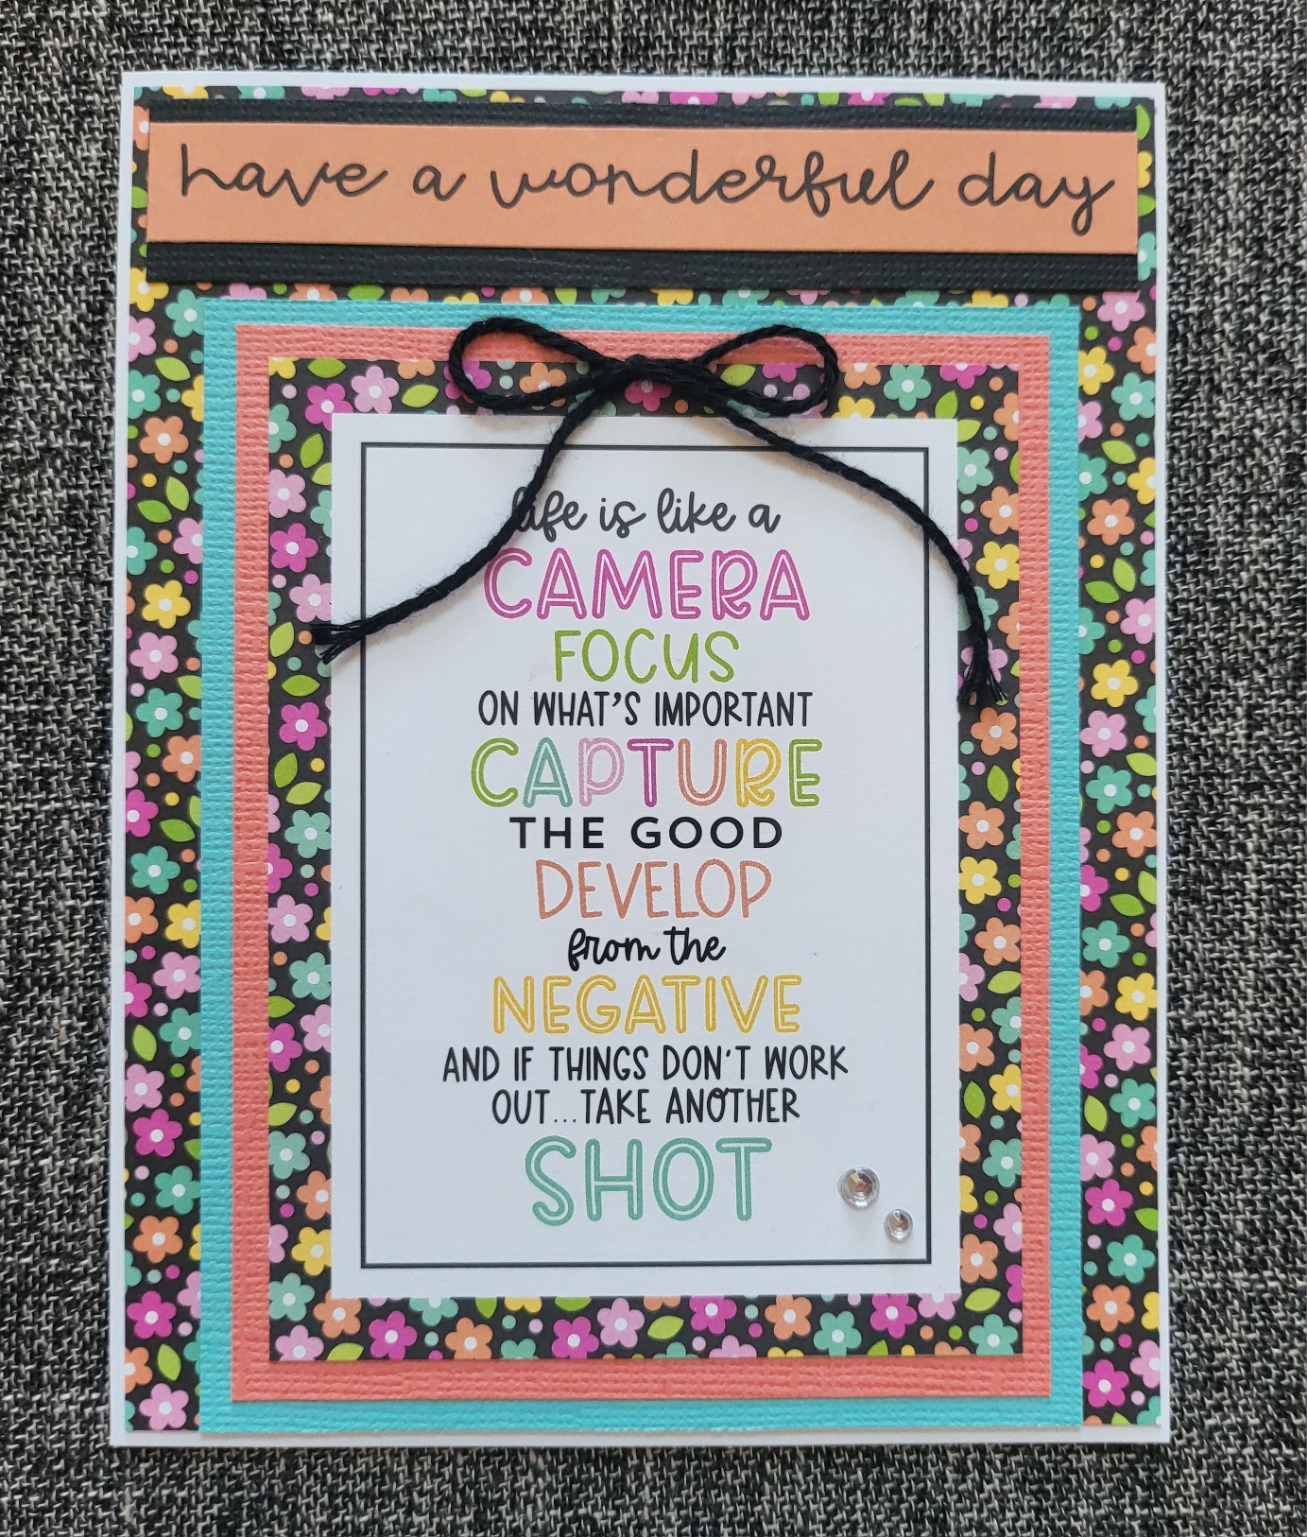 have a wonderful day
life is like a
CAMERA
FOCUS
ON WHAT'S IMPORTANT
CAPTURE
THE GOOD
DEVELOP
from the
NEGATIVE
AND IF THINGS DON'T WORK
OUT...TAKE ANOTHER
SHOT